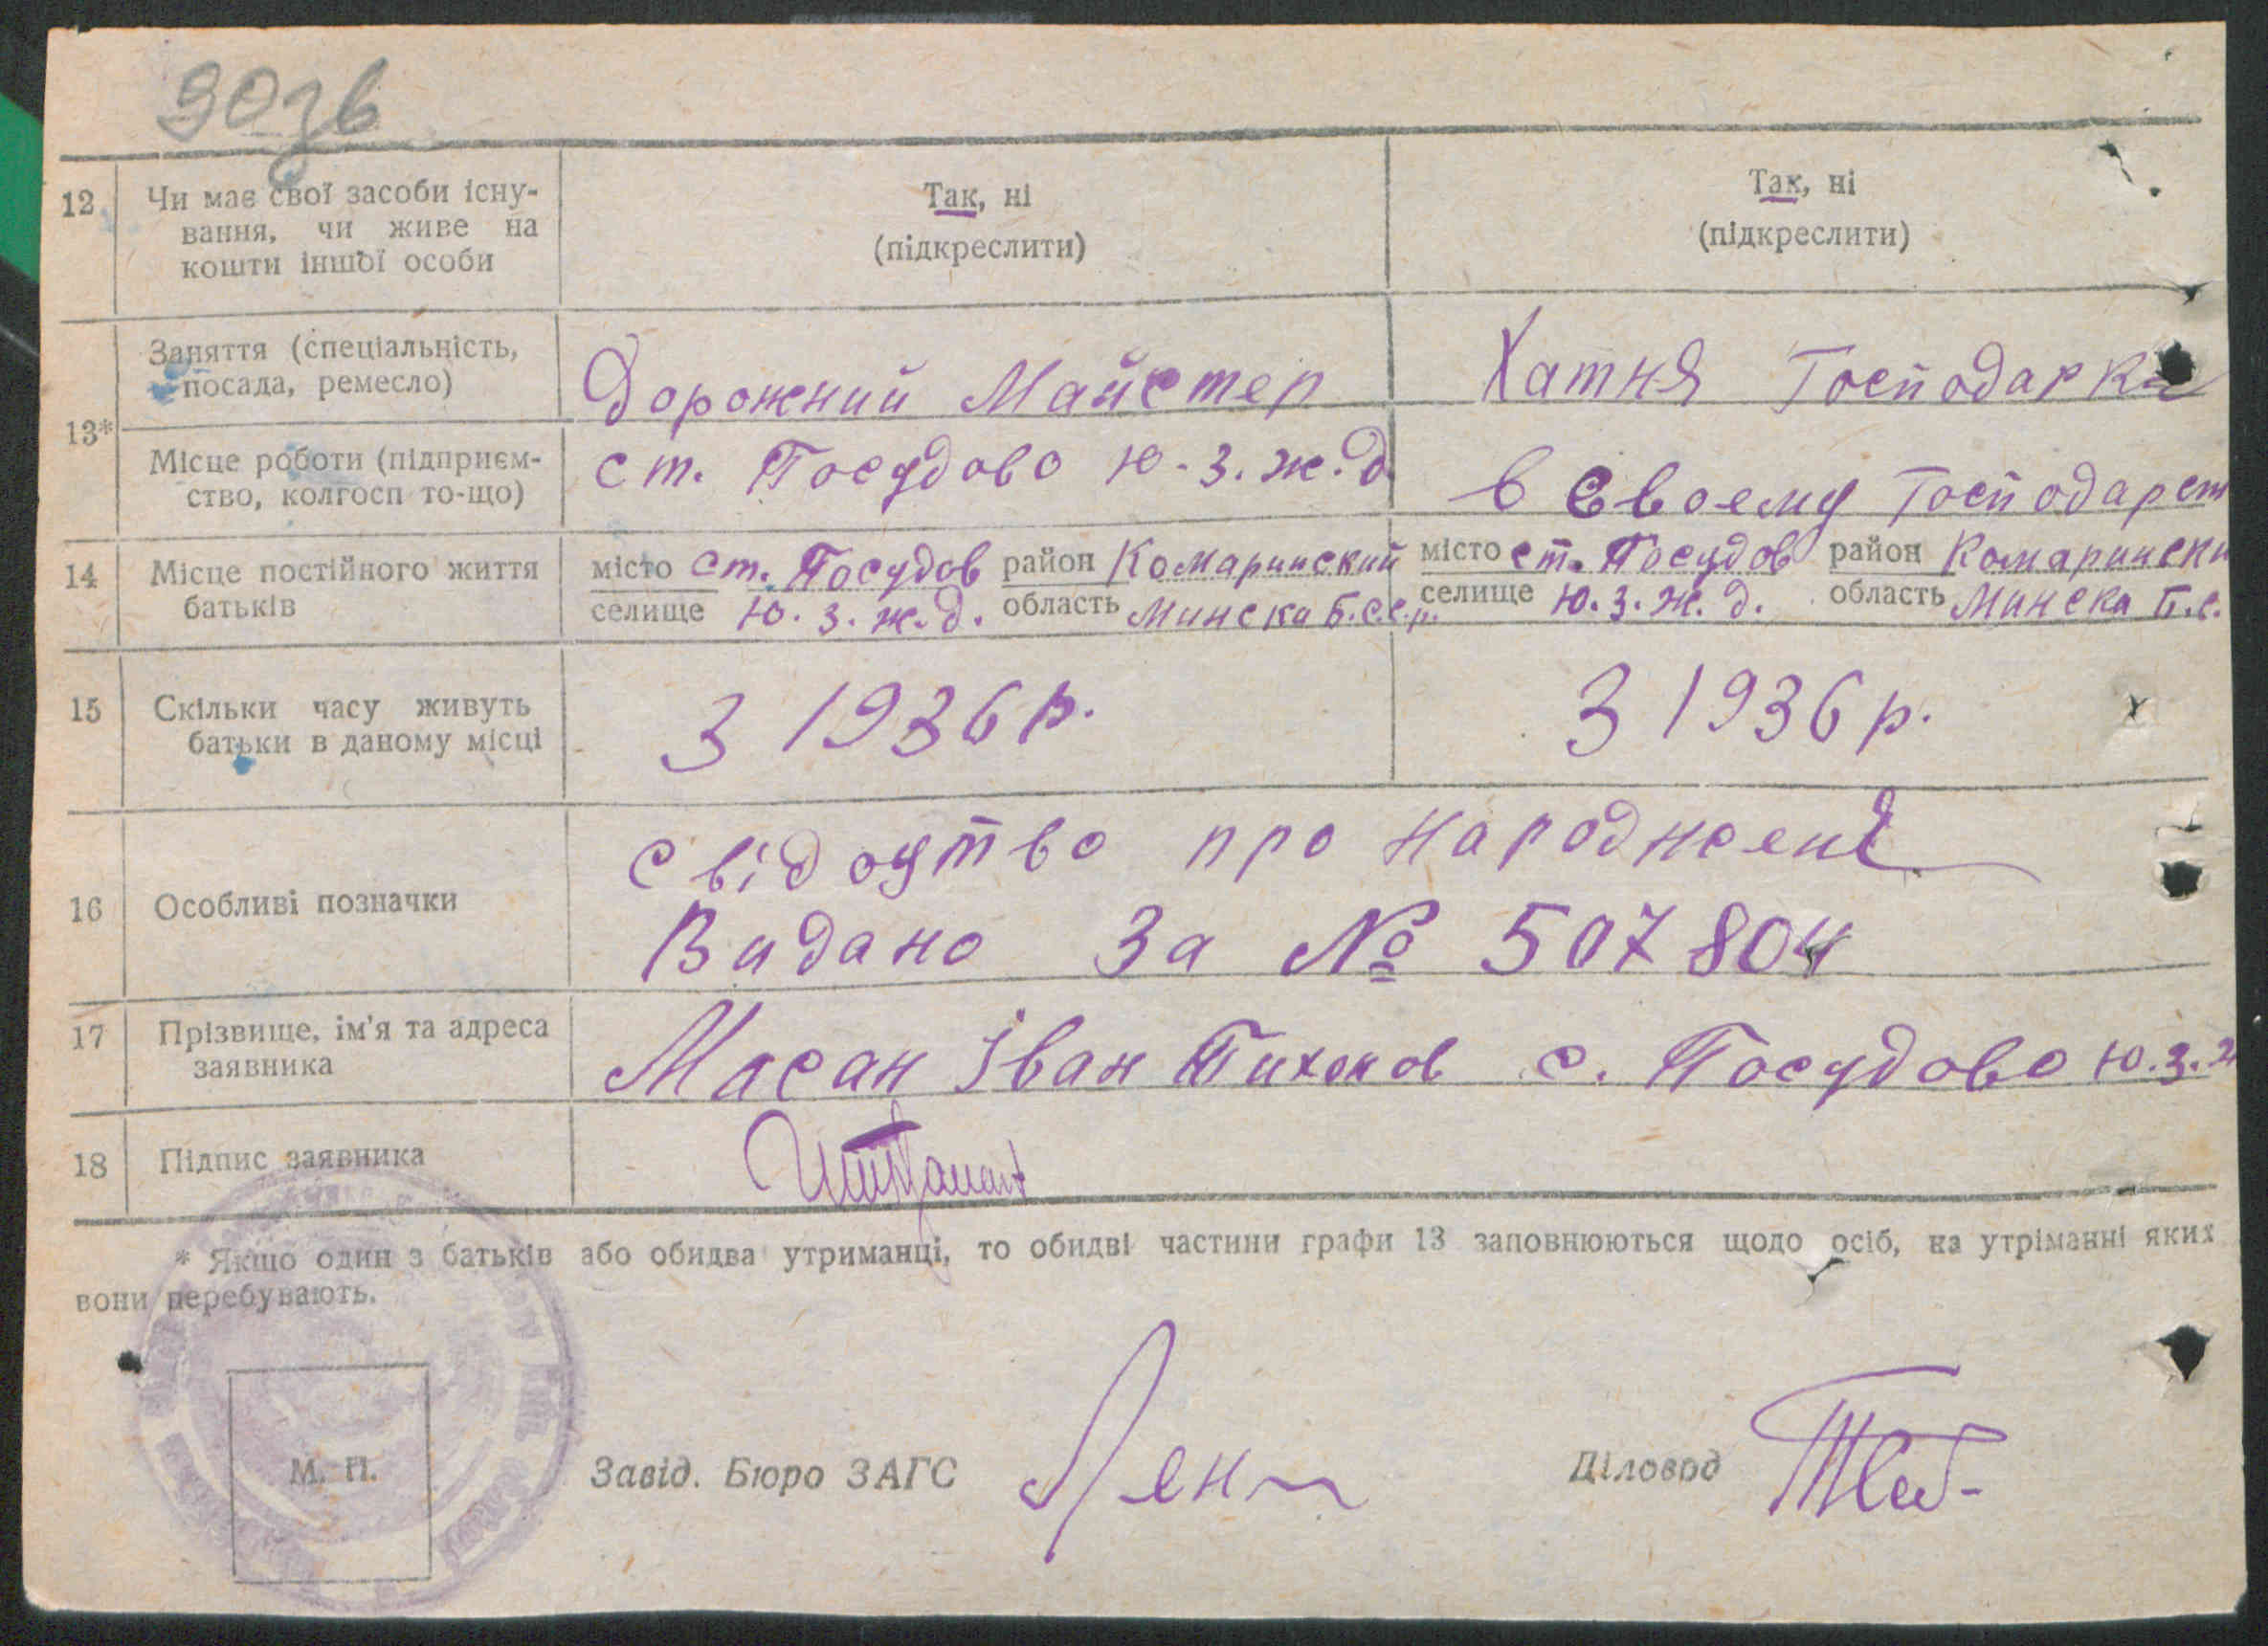 12 Чи має свої засоби існу-
вання, чи живе на
кошти іншої особи
Так, ні
(підкреслити)
Так, ні
(підкреслити)
13*
Заняття (спеціальність,
посада, ремесло)
Дорожний Майстер
Хатня Господарка
Місце роботи (підприєм-
ство, колгосп то-що)
ст. Посудово Ю-З.ж.д
в Своему Господарст
14 Місце постійного життя
батьків
місто ст. Посудов район Комаринский
селище Ю.З.ж.д. область Минска Б.С.С.р.
місто ст. Посудов район Комарински
селище Ю.З.ж.д. область Минска Б.С.
15 Скільки часу живуть
батьки в даному місці
З 1936 р.
З 1936 р.
16 Особливі позначки
свідоутво про народжені
Видано За № 507804
17 Прізвище, ім'я та адреса
заявника
Масан Іван Тихонов с. Посудово Ю.З.ж
18 Підпис заявника
* Якщо один з батьків або обидва утриманці, то обидві частини графи 13 заповнюються щодо осіб, на утріманні яких
вони перебувають.
М. П.
Завід. Бюро ЗАГС
Діловод